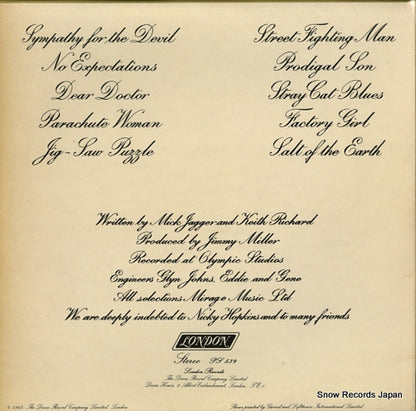 Sympathy for the Devil
No Expectations
Dear Doctor
Parachute Woman
Jig-Saw Puzzle
Street Fighting Man
Prodigal Son
Stray Cat Blues
Factory Girl
Salt of the Earth
Written by Mick Jagger and Keith Richard
Produced by Jimmy Miller
Recorded at Olympic Studios
Engineers Glyn Johns, Eddie and Gene
All selections Mirage Music Ltd
We are deeply indebted to Nicky Hopkins and to many friends
LONDON
Stereo PS 539
London Records
The Decca Record Company Limited
Decca House, 9 Albert Embankment, London, S.E.1
© 1968, The Decca Record Company Limited, London
Sleeve printed by Garrod and Lofthouse International Limited
Snow Records Japan